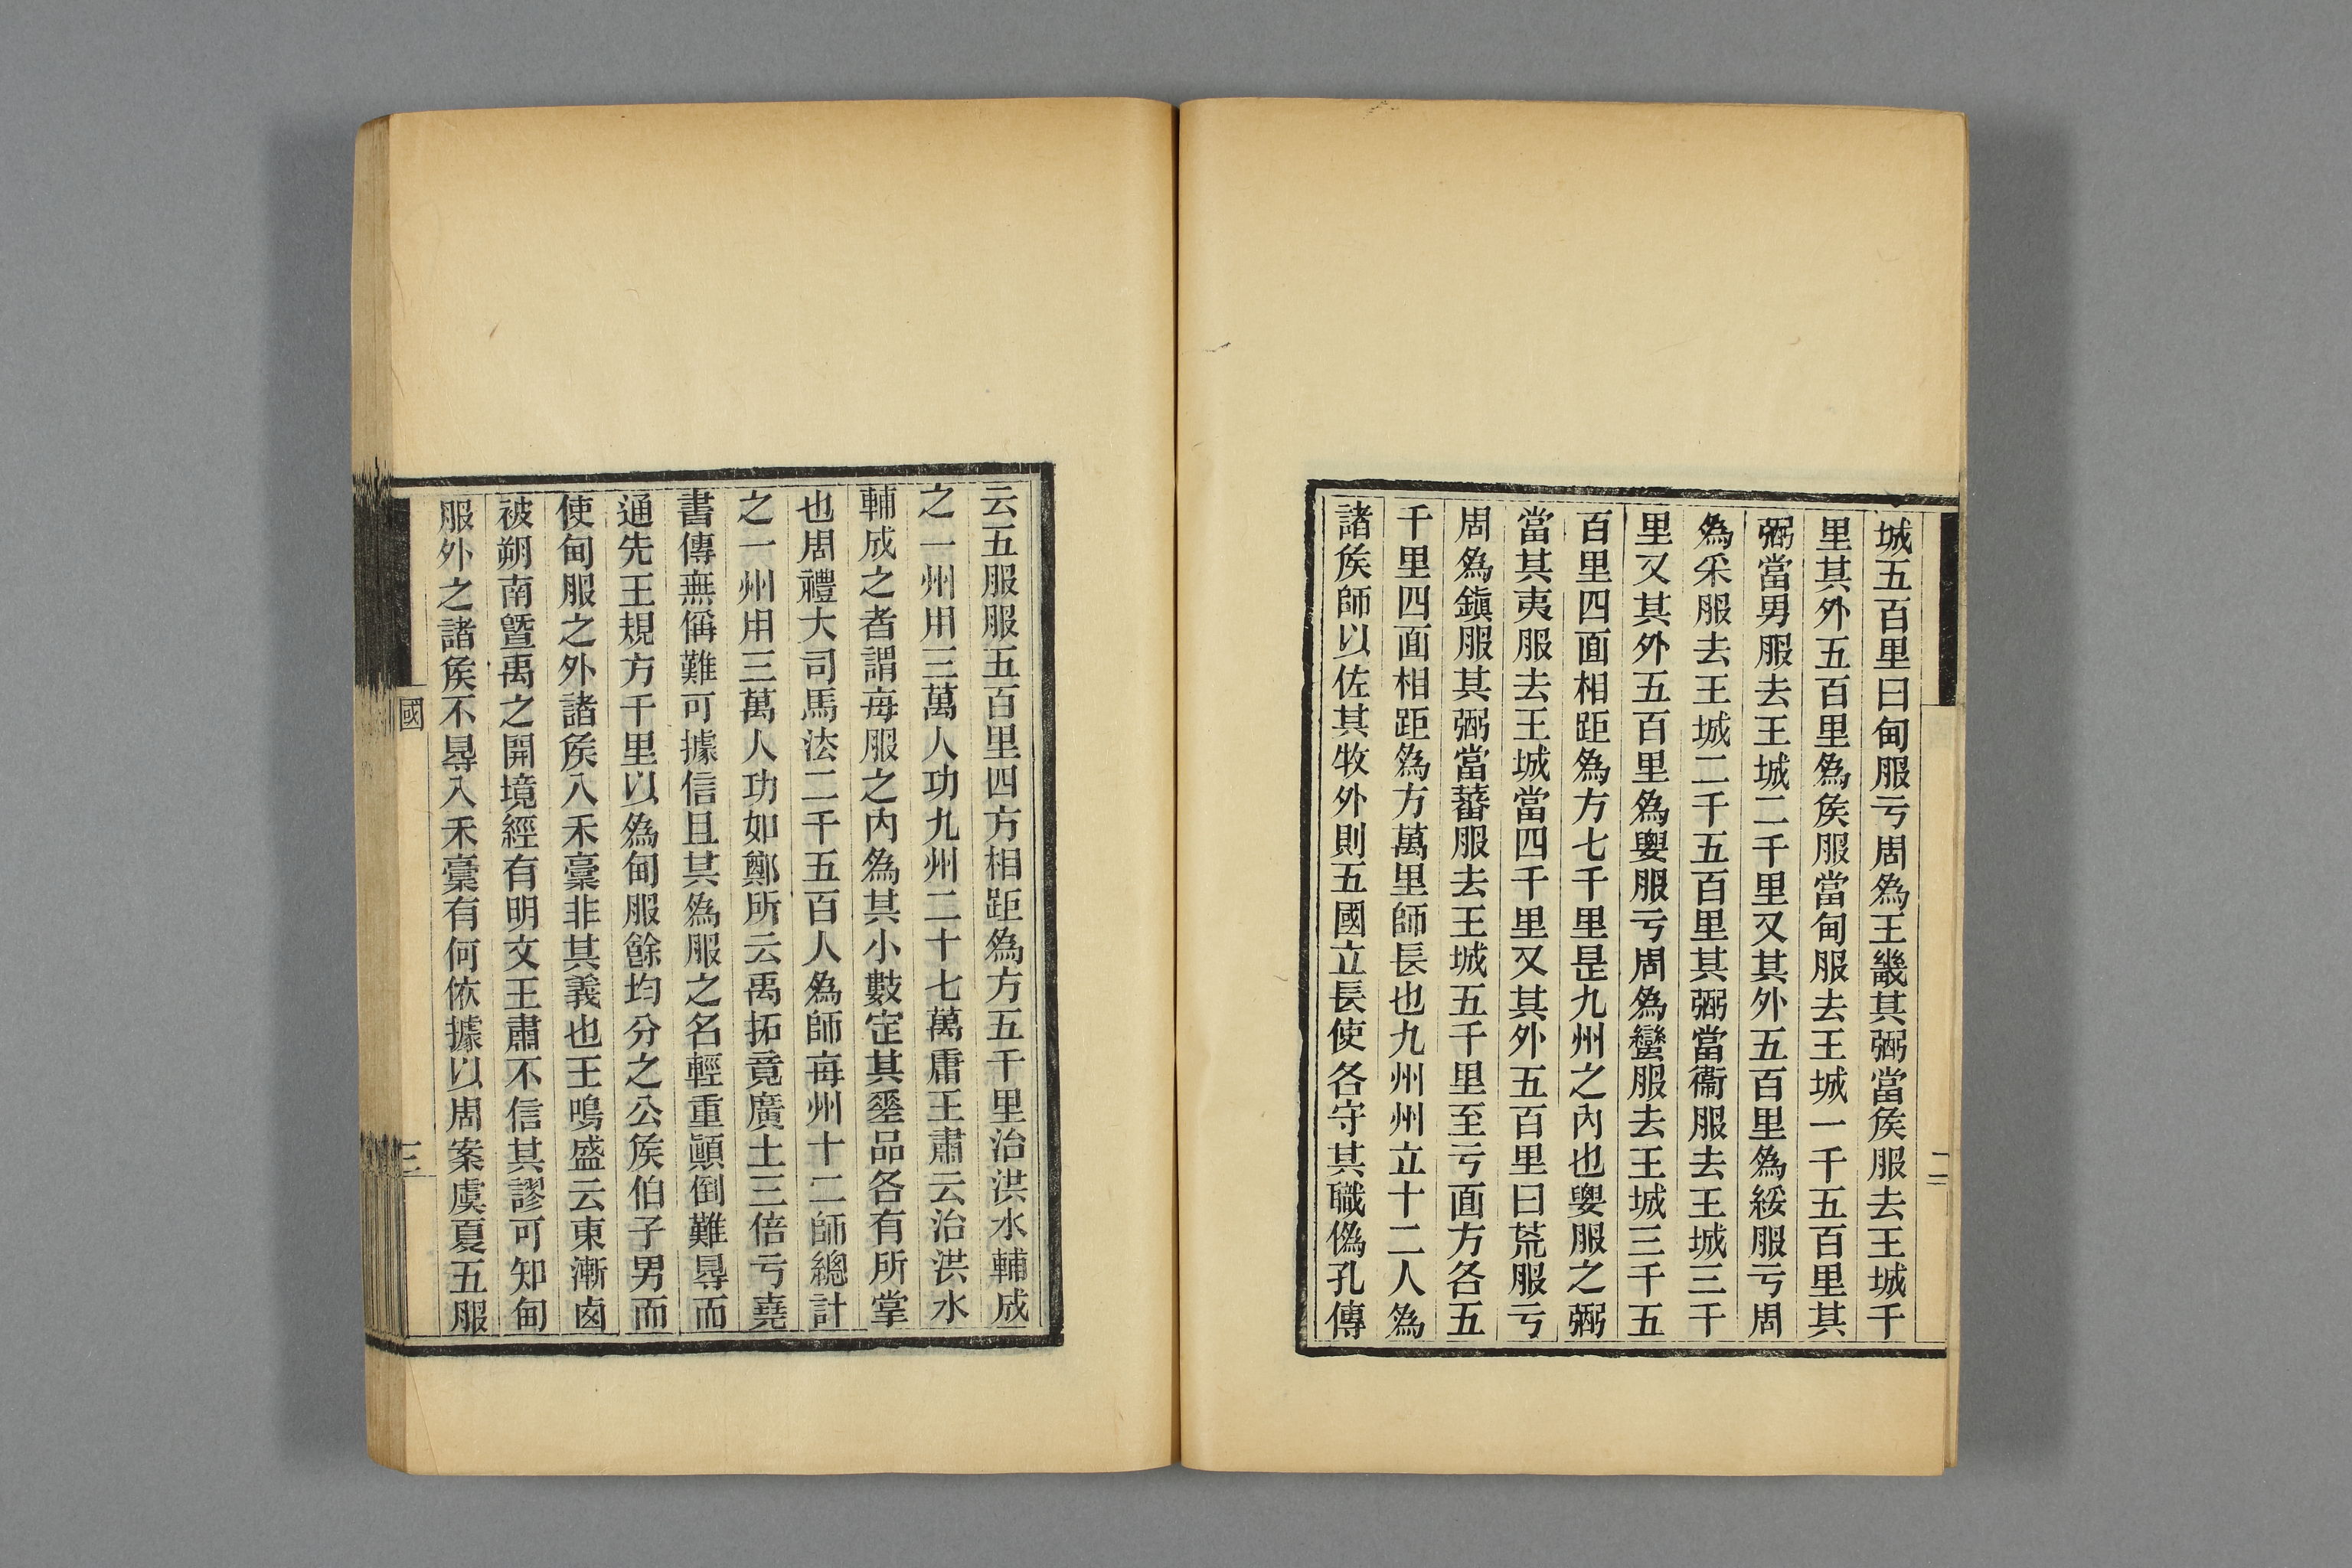 城五百里曰甸服亏周爲王畿其弼當矦服去王城千
里其外五百里爲矦服當甸服去王城一千五百里其
弼當男服去王城二千里又其外五百里爲綏服亏周
爲采服去王城二千五百里其弼當衞服去王城三千
里又其外五百里爲㜅服亏周爲蠻服去王城三千五
百里四面相距爲方七千里是九州之內也㜅服之弼
當其夷服去王城當四千里又其外五百里曰荒服亏
周爲鎭服其弼當蕃服去王城五千里至亏面方各五
千里四面相距爲方萬里師長也九州州立十二人爲
諸矦師以佐其牧外則五國立長使各守其職僞孔傳
二
云五服服五百里四方相距爲方五千里治洪水輔成
之一州用三萬人功九州二十七萬庸王肅云治洪水
輔成之者謂每服之內爲其小數定其𡐨品各有所掌
也周禮大司馬法二千五百人爲師每州十二師總計
之一州用三萬人功如鄭所云禹拓竟廣土三倍亏堯
書傳無偁難可據信且其爲服之名輕重顚倒難㝵而
通先王規方千里以爲甸服餘均分之公矦伯子男而
使甸服之外諸矦入禾稾非其義也王鳴盛云東漸㢴
被朔南曁禹之開境經有明文王肅不信其謬可知甸
服外之諸矦不㝵入禾稾有何依據以周案虞夏五服
國
三